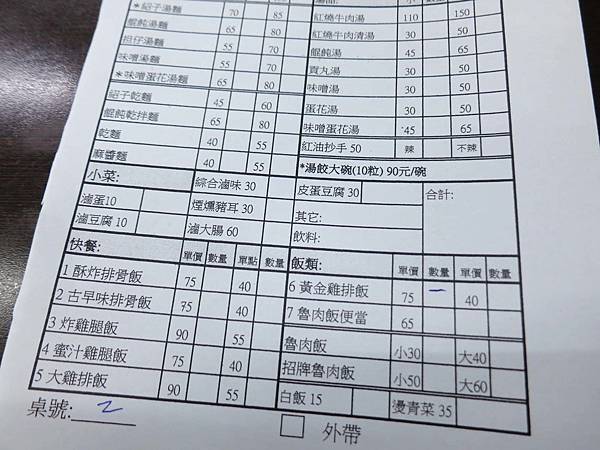 *紹子湯麵 70 85
餛飩湯麵 65 80
担仔湯麵 55 70
味噌湯麵 55 70
*味噌蛋花湯麵 65 80
紹子乾麵 45 60
餛飩乾拌麵 65 80
乾麵 40 55
麻醬麵 40 55
紅燒牛肉湯 110 150
紅燒牛肉清湯 30 50
餛飩湯 45 65
貢丸湯 30 50
味噌湯 30 50
蛋花湯 30 50
味噌蛋花湯 45 65
紅油抄手 50 辣 不辣
*湯餃大碗(10粒) 90元/碗
小菜: 綜合滷味 30 皮蛋豆腐 30 合計:
滷蛋10 煙燻豬耳 30 其它:
滷豆腐 10 滷大腸 60 飲料:
快餐: 單價 數量 單點 數量
1 酥炸排骨飯 75 40
2 古早味排骨飯 75 40
3 炸雞腿飯 90 55
4 蜜汁雞腿飯 75 40
5 大雞排飯 90 55
飯類: 單價 數量 單點 數量
6 黃金雞排飯 75 一 40
7 魯肉飯便當 65
魯肉飯 小30 大40
招牌魯肉飯 小50 大60
白飯 15 燙青菜 35
桌號: 2
外帶